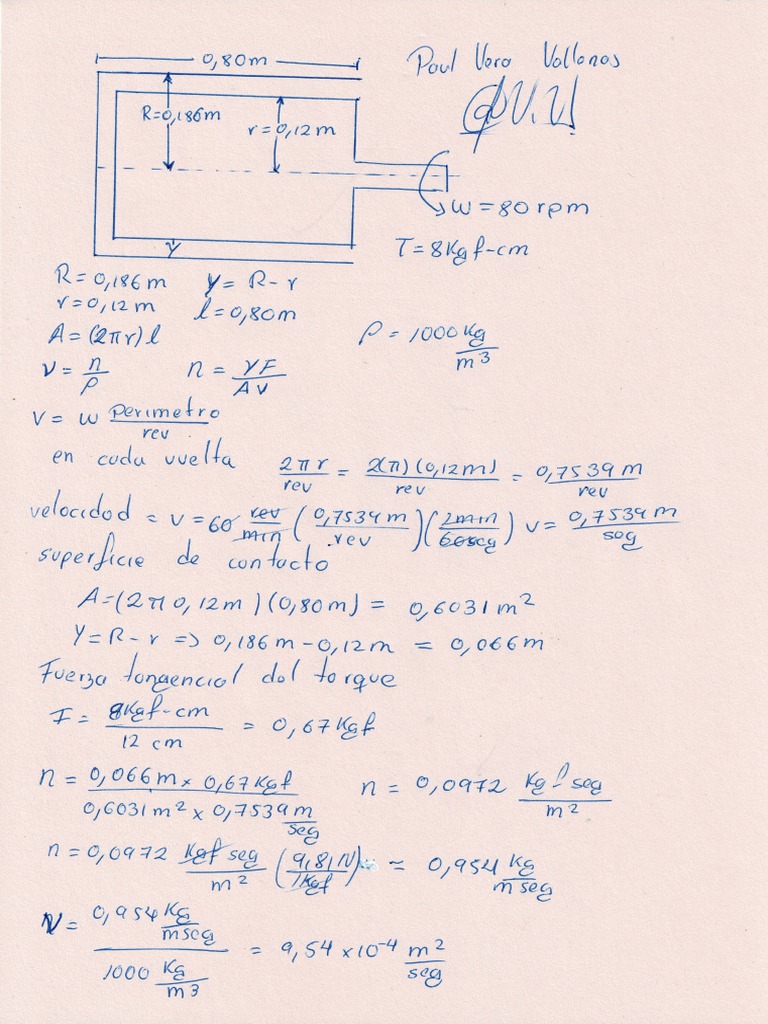 0,80m
Paul Vera
R=0,186m
r=0,12m
W=80rpm
T=8Kgf-cm
y
R=0,186m y=R-r
r=0,12m l=0,80m
A=(2πr)l ρ=1000 Kg/m³
ν=n/ρ n=yF/AV
V=W perimetro/rev
en cada vuelta 2πr/rev = 2(π)(0,12m)/rev = 0,7539m/rev
velocidad = v=60 rev/min (0,7539m/rev)(1min/60seg) v=0,7539m/seg
superficie de contacto
A=(2π0,12m)(0,80m)= 0,6031m²
Y=R-r => 0,186m-0,12m = 0,066m
Fuerza tangencial del torque
F= 8Kgf-cm/12 cm = 0,67Kgf
n= 0,066m x 0,67Kgf/0,6031m² x 0,7539m/seg n=0,0972 Kgf seg/m²
n=0,0972 Kgf seg/m² (9,81N/1Kgf) = 0,954 Kg/m seg
ν= 0,954Kg/mseg/1000 Kg/m³ = 9,54x10⁻⁴ m²/seg